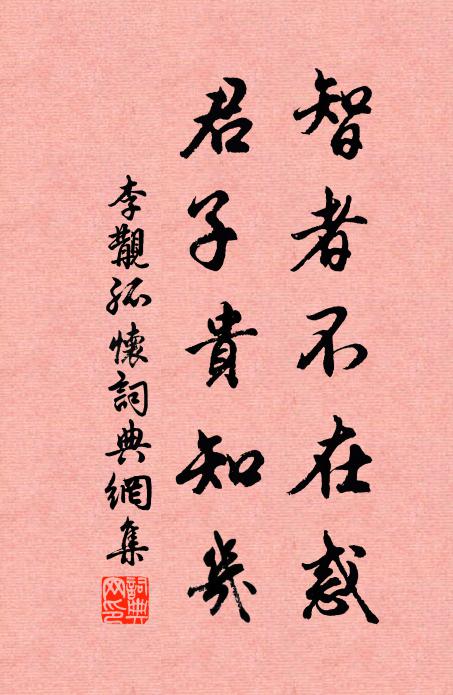 智者不在惑
君子貴知幾
李覯孤懷詞典網集
詞典网